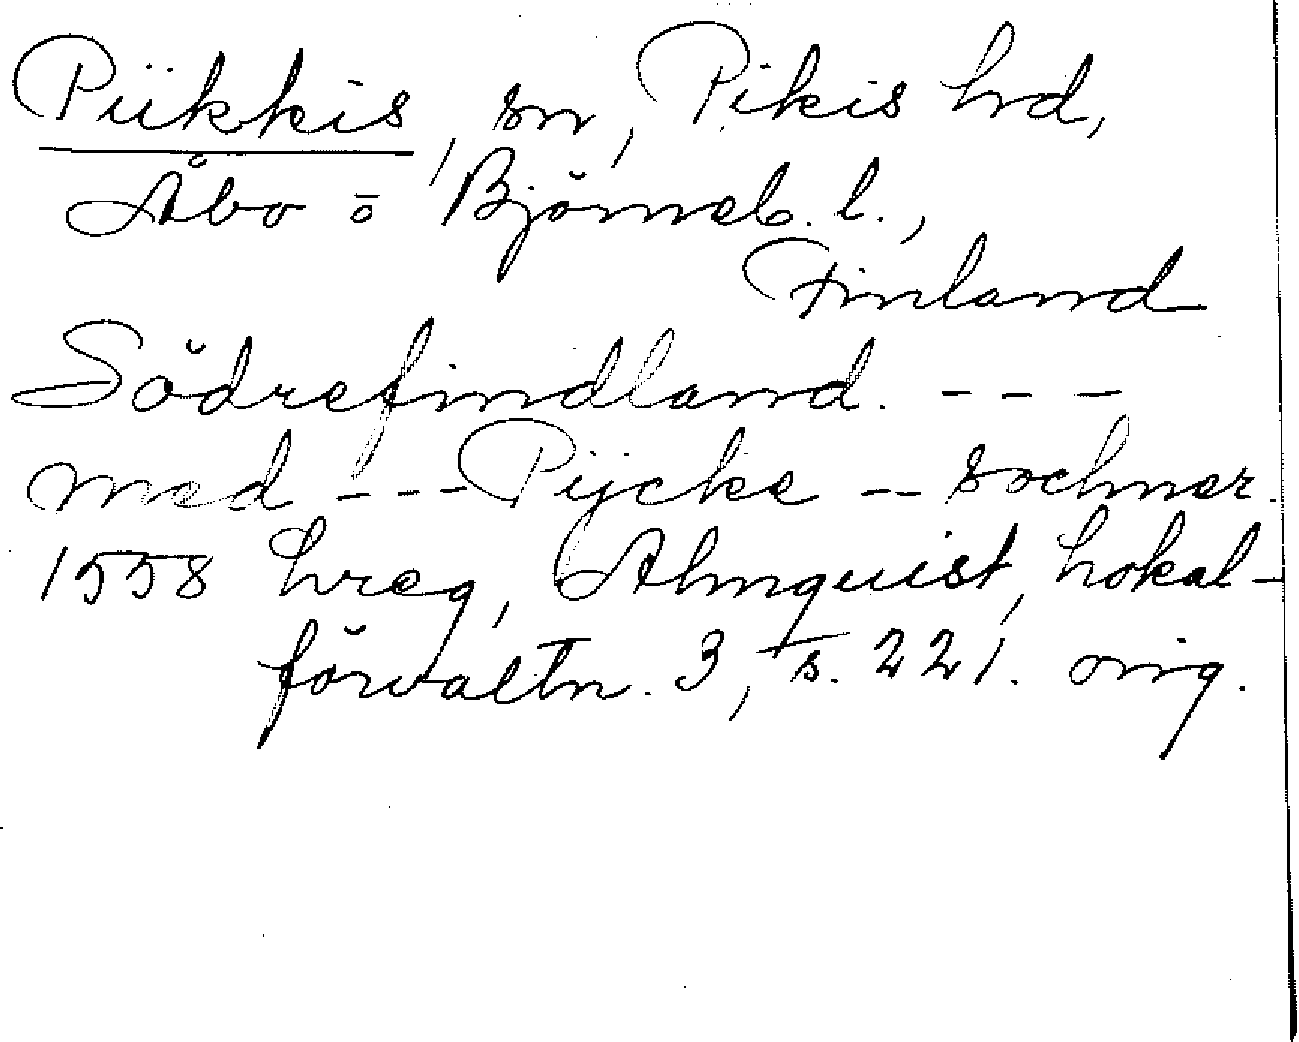 Piikkis, sn, Pikis hrd,
Åbo o Björneb. l.,
Finland
Södrefindland. - - -
med - - - Pijcke -- sochner.
1558 hreg, Almquist, Lokal-
förvaltn. 3, s. 221. orig.